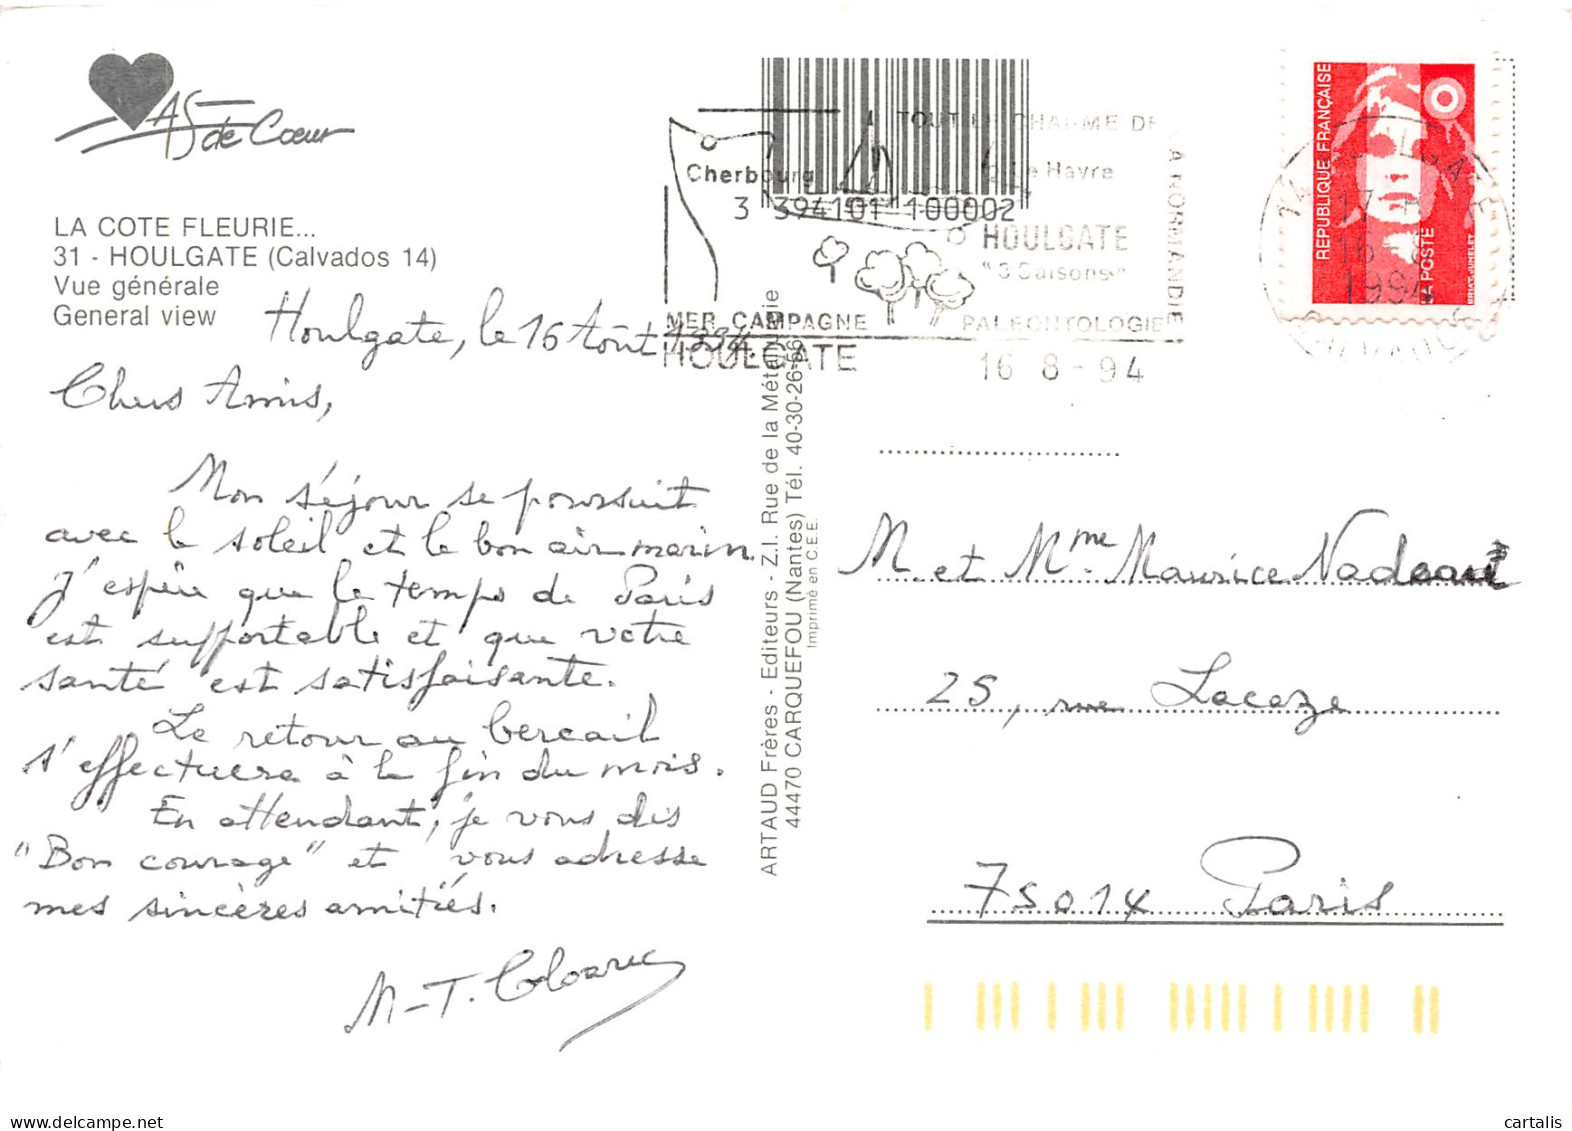 AS de Cœur
LA COTE FLEURIE...
31 - HOULGATE (Calvados 14)
Vue générale
General view
Houlgate, le 16 Août 1994.
Chers Amis,
Mon séjour se poursuit
avec le soleil et le bon air marin.
J'espère que le temps de Paris
est supportable et que votre
santé est satisfaisante.
Le retour au bercail
s'effectuera à la fin du mois.
En attendant, je vous dis
"Bon courage" et vous adresse
mes sincères amitiés.
M-T.
ARTAUD Frères - Editeurs - Z.I. Rue de la Métallurgie
44470 CARQUEFOU (Nantes) Tél. 40-30-26-56
Imprimé en C.E.E.
3 394101 100002
TOUT LE CHARME DE
LA NORMANDIE
Cherbourg
Le Havre
HOULGATE
"3 Saisons"
MER CAMPAGNE
PALEONTOLOGIE
HOULGATE
16 8 - 94
REPUBLIQUE FRANÇAISE
LA POSTE
BRIAT-JUMELET
14 HOULGATE
17 H
16-8
1994
CALVADOS
M. et Mme Maurice Nadeau
25, rue Lacaze
75014 Paris
cartalis